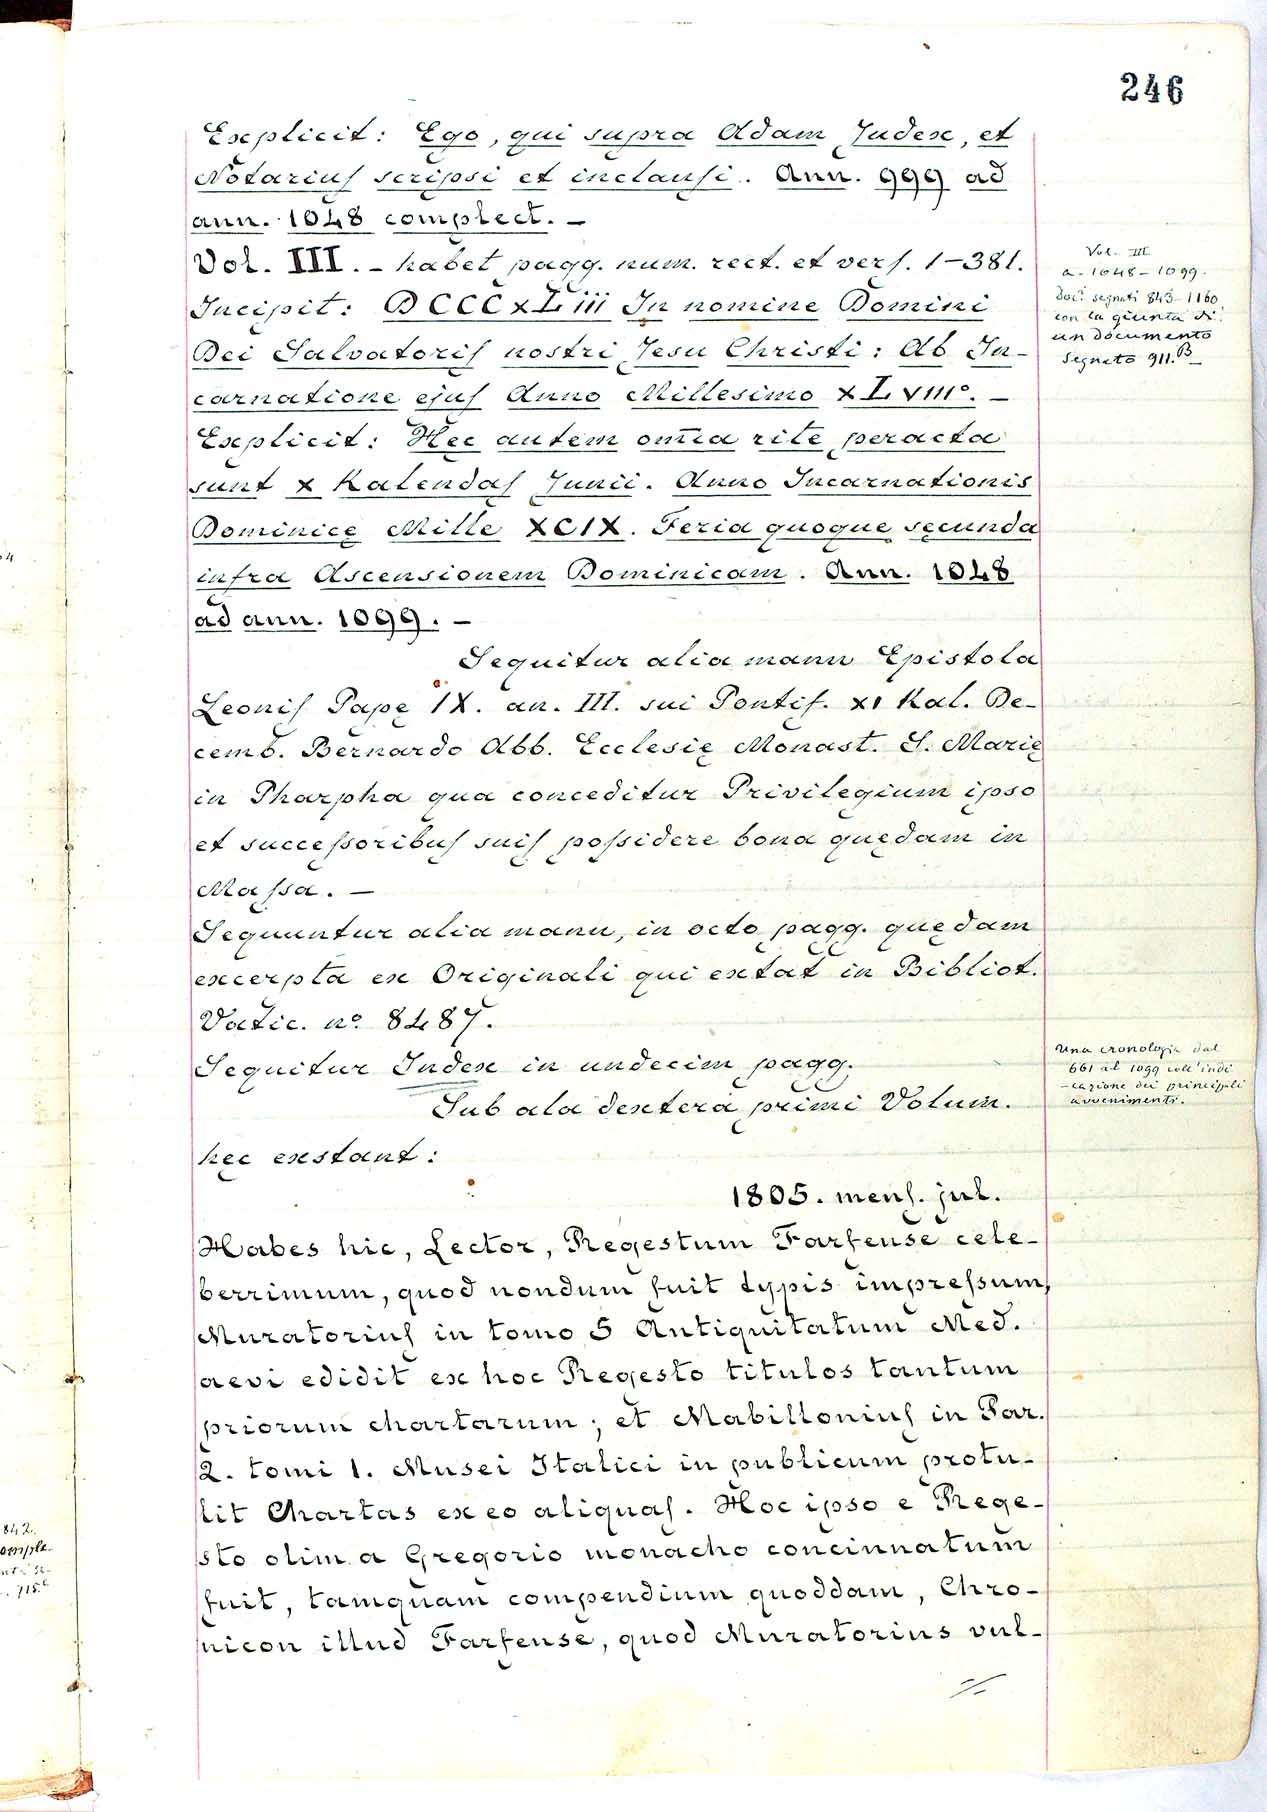 246
Explicit: Ego, qui supra Adam Judex, et
Notarius scripsi et inclausi. Ann. 999 ad
ann. 1048 complect. –
Vol. III. – habet pagg. num. rect. et vers. 1–381.
Incipit: DCCCXLiii In nomine Domini
Dei Salvatoris nostri Jesu Christi: Ab In-
carnatione ejus Anno Millesimo XLVIII°. –
Explicit: Hec autem om̅ia rite peracta
sunt X Kalendas Junii. Anno Incarnationis
Dominicę Mille XCIX. Feria quoque secunda
infra Ascensionem Dominicam. Ann. 1048
ad ann. 1099. –
Sequitur alia manu Epistola
Leonis Papę IX. an. III. sui Pontif. XI Kal. De-
cemb. Bernardo Abb. Ecclesię Monast. S. Marię
in Pharpha qua conceditur Privilegium ipso
et successoribus suis possidere bona quędam in
Massa. –
Sequuntur alia manu, in octo pagg. quędam
excerpta ex Originali qui extat in Bibliot.
Vatic. n° 8487.
Sequitur Index in undecim pagg.
Sub ala dextera primi Volum.
hęc exstant:
1805. mens. jul.
Habes hic, Lector, Regestum Farfense cele-
berrimum, quod nondum fuit typis impressum,
Muratorius in tomo 5 Antiquitatum Med.
aevi edidit ex hoc Regesto titulos tantum
priorum chartarum; et Mabillonius in Par.
2. tomi 1. Musei Italici in publicum protu-
lit Chartas ex eo aliquas. Hoc ipso e Rege-
sto olim a Gregorio monacho concinnatum
fuit, tamquam compendium quoddam, Chro-
nicon illud Farfense, quod Muratorius vul-
Vol. III
a. 1048–1099.
Doci segnati 843–1160
con la giunta di
un documento
segnato 911.B –
Una cronologia dal
661 al 1099 coll'indi
-cazione dei principali
avvenimenti.
842.
715.c